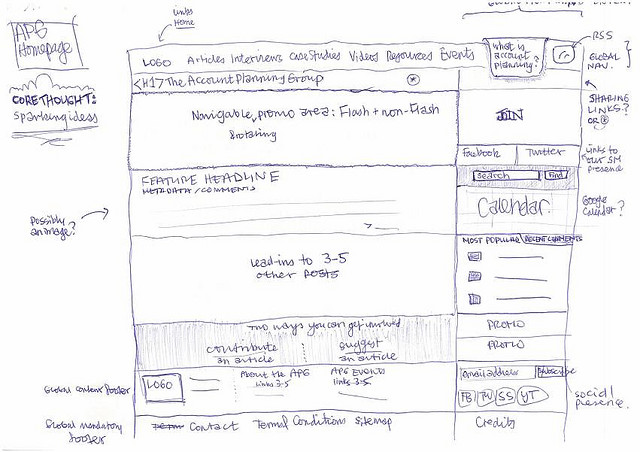 APG
Homepage
CORETHOUGHT:
Sparking ideas
links
Home
RSS
GLOBAL
NAV.
LOGO Articles Interviews Case Studies Videos Resources Events
What is
account
planning?
<H1> The Account Planning Group
SHARING
LINKS?
OR
Navigable, promo area: Flash + non-Flash
&rotating
JOIN
Facebook Twitter
Links to
our SM
presence
FEATURE HEADLINE
METADATA / COMMENTS
Search Find
Calendar.
Google
Calendar?
possibly
an image?
MOST POPULAR RECENT COMMENTS
Lead-ins to 3-5
other posts
Two ways you can get involved
contribute
an article
suggest
an article
PROMO
PROMO
Global content footer
LOGO
About the APG
links 3-5
APG EVENTS
links 3-5
Email address Subscribe
FB TW SS YT
social
presence.
Global mandatory
footer
Contact Terms Conditions sitemap
Credits